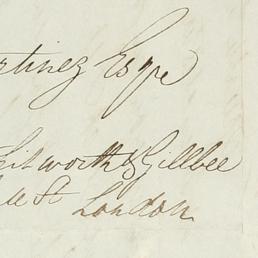 rtinez Esqre
itworth & Gillbee
St London